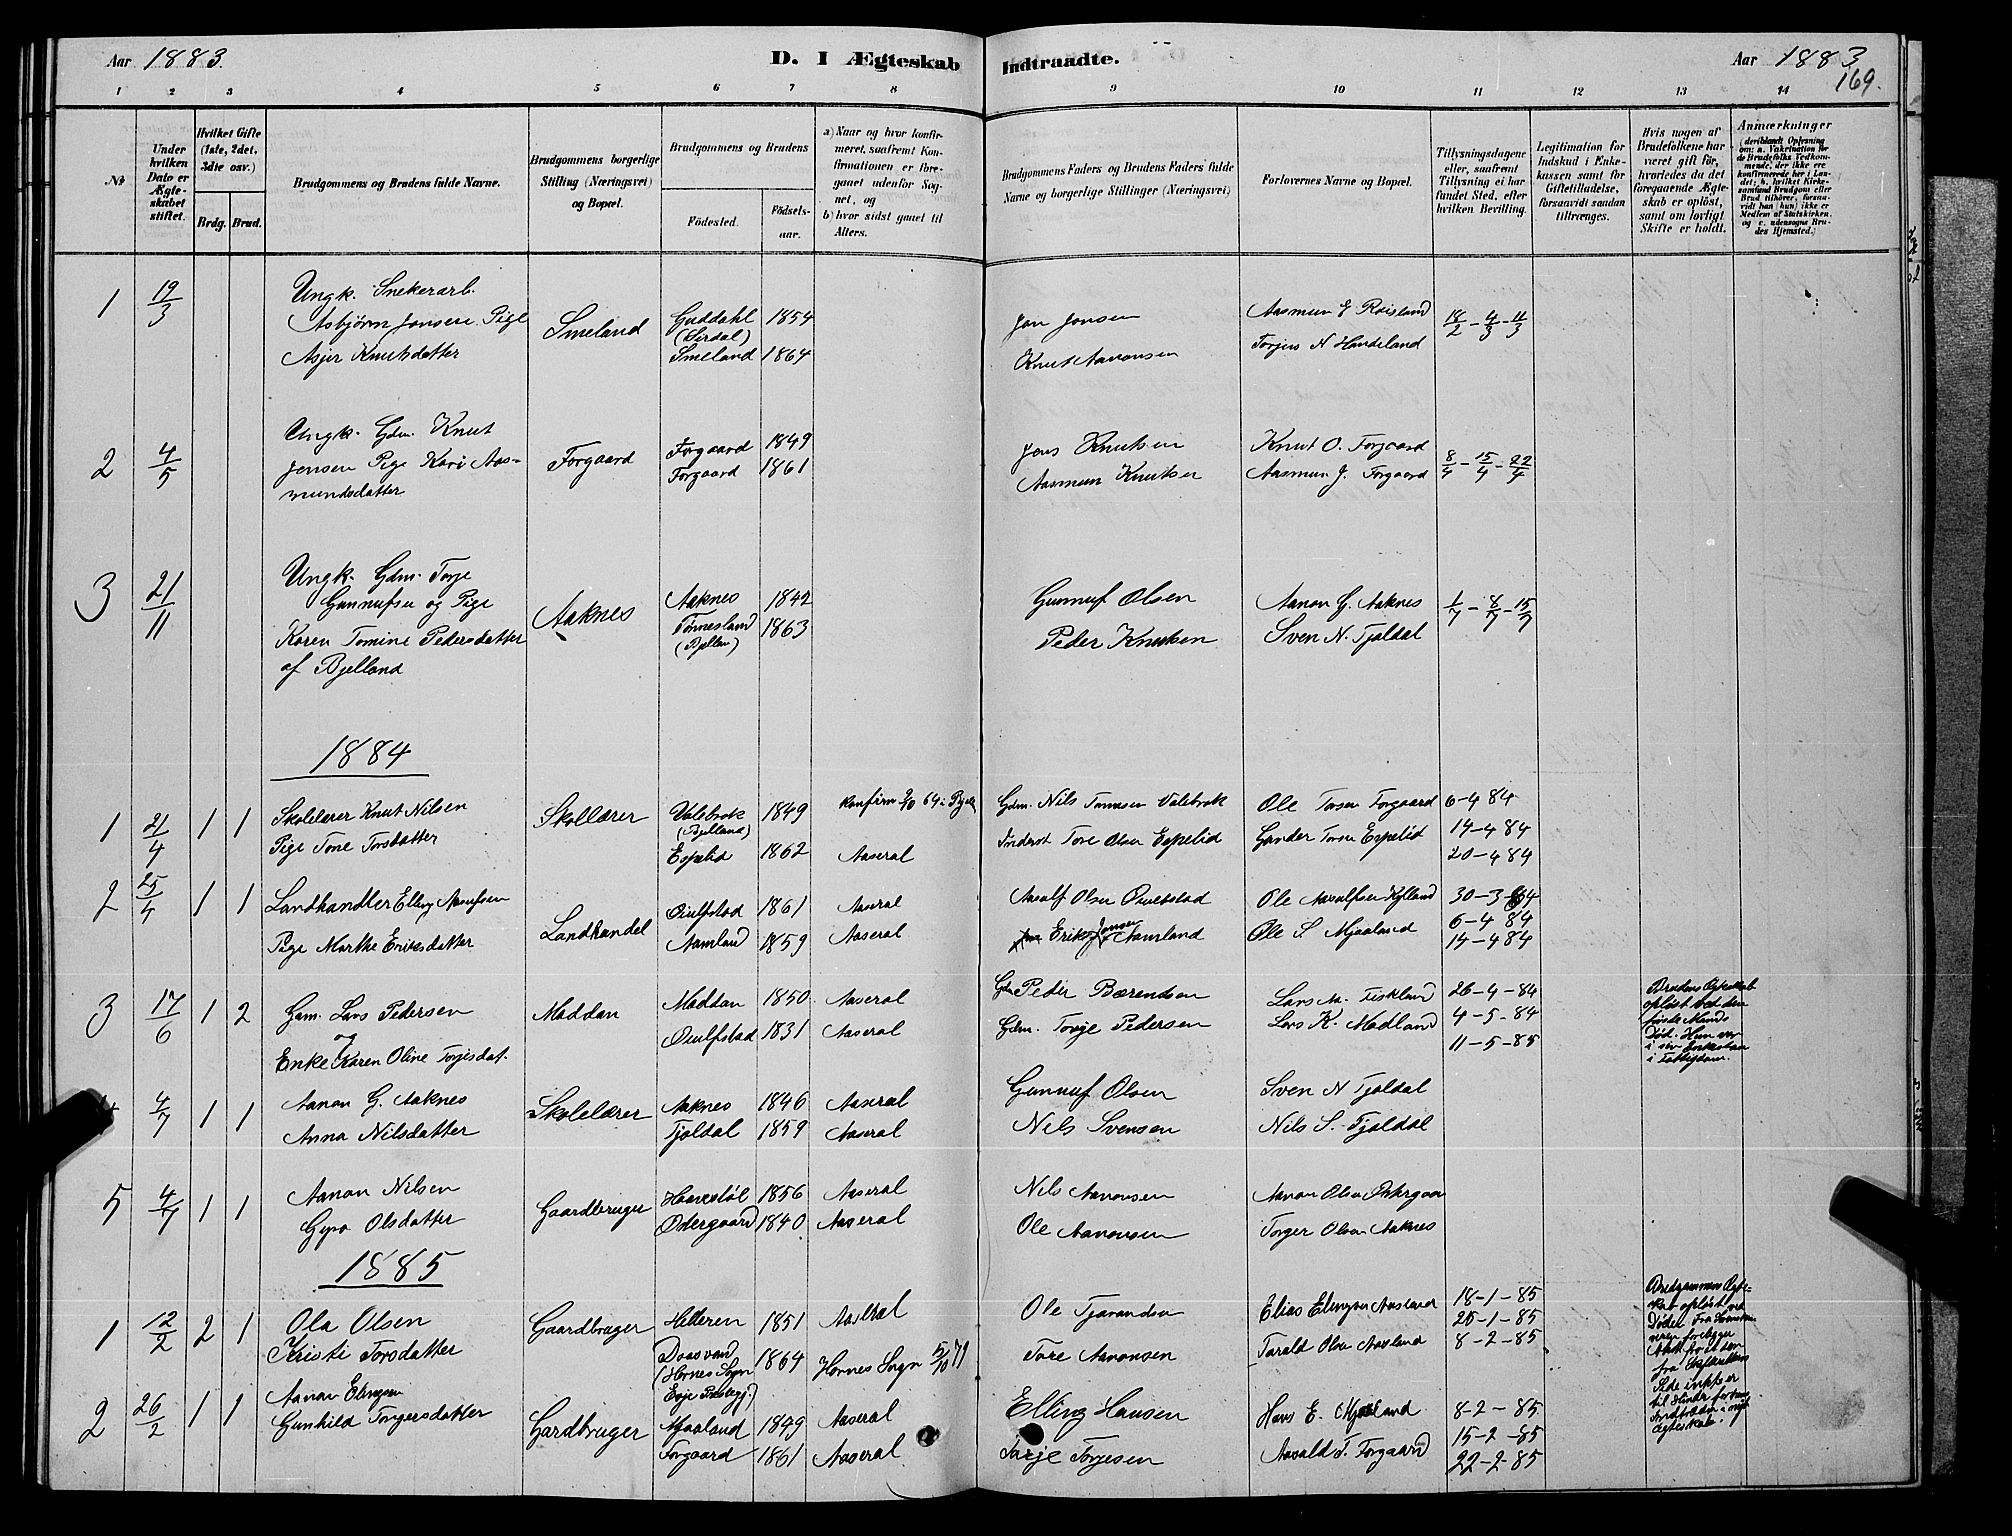 Aar 1883.
D. I Ægteskab Indtraadte.
Aar 1883
169.
1 2 3 4 5 6 7 8 9 10 11 12 13 14
№
Under hvilken Dato er Ægteskabet stiftet.
Hvilket Gifte (1ste, 2det, 3die osv.)
Brdg. Brud.
Brudgommens og Brudens fulde Navne.
Brudgommens borgerlige Stilling (Næringsvei) og Bopæl.
Brudgommens og Brudens
Födested.
Födsels-aar.
a) Naar og hvor konfirmeret, saafremt Konfirmationen er foregaaet udenfor Sognet, og
b) hvor sidst gaaet til Alters.
Brudgommens Faders og Brudens Faders fulde Navne og borgerlige Stillinger (Næringsvei)
Forlovernes Navne og Bopæl.
Tillysningsdagene eller, saafremt Tillysning ei har fundet Sted, efter hvilken Bevilling.
Legitimation for Indskud i Enkekassen samt for Giftetilladelse, forsaavidt saadan tiltrænges.
Hvis nogen af Brudefolkene har været gift för, hvorledes da det foregaaende Ægteskab er oplöst, samt om lovligt Skifte er holdt.
Anmærkninger
(deriblandt Oplysning om: a. Vakcination for de Brudefolks Vedkommende, der ikke ere konfirmerede her i Landet; b. hvilket Kirkesamfund Brudgom eller Brud tilhörer, forsaavidt han (hun) ikke er Medlem af Statskirken, og c. udensogns Brudes Hjemsted.)
1 19/3 Ungk. Snekerarb. Asbjörn Jonsen Pige Asjer Knutsdatter
Smeland
Guddahl (Sirdal) 1854
Smeland 1864
Jon Jonsen
Knut Aanonsen
Aasmun G Röisland
Torjus N Handeland
18/2 - 4/3 - 11/3
2 4/5 Ungk. Gdm. Knut Jensen Pige Kari Aasmundsdatter
Forgaard
Forgaard 1849
Forgaard 1861
Jens Knutsen
Aasmun Knutsen
Knut O. Forgaard
Aasmun J. Forgaard
8/4 - 15/4 - 22/4
3 21/11 Ungk. Gdm. Torje Gunnufsen og Pige Karen Tomine Pedersdatter af Bjelland
Aaknes
Aaknes 1842
Tönnesland (Bjellan) 1863
Gunnuf Olsen
Peder Knutsen
Aanon G. Aaknes
Sven N. Tjaldal
1/7 - 8/7 - 15/7
1884
1 21/4 1 1 Skolelærer Knut Nilsen
Pige Tone Torsdatter
Skolelærer
Valebrok (Bjelland) 1849
Espelid 1862
Aaseral
Gdm. Nils Tomesen Valebrok
Inderst Tore Olsen Espelid
Ole Torsen Forgaard
Gunder Torsen Espelid
6-4 84
14-4 84
20-4 84
2 25/4 1 1 Landhandler Elling Aasulfsen
Pige Marthe Eriksdatter
Landhandel
Oiulfstad 1861 Aaseral
Aamland 1859 Aaseral
Aasulf Olsen Oiulfstad
Erik Jonsen Aamland
Ole Aasulfsen Kylland
Ole S Mjaaland
30-3-84
6-4 84
14-4 84
3 17/6 1 2 Gam. Lars Pedersen
og
Enke Karen Oline Torjesdat.
Maddan
Maddan 1850 Aaseral
Oiulfstad 1831 Aaseral
Gdm Peder Bærendsen
Gdm. Torje Pedersen
Lars M. Fiskland
Lars K. Madland
26-4-84
4-5-84
11-5-85
Brudens Egteskab oplöst ved den förste Mands Död. Hun var i sin Enkestan i Fattigdom.
4 4/7 1 1 Aanon G. Aaknes
Anna Nilsdatter
Skolelærer
Aaknes 1846 Aaseral
Tjaldal 1859 Aaseral
Gunnuf Olsen
Nils Svensen
Sven N Tjaldal
Nils S. Tjaldal
5 4/7 1 1 Aanon Nilsen
Gyro Olsdatter
Gaardbruger
Haavestöl 1856 Aaseral
Ostergaard 1840 Aaseral
Nils Aanonsen
Ole Aanonsen
Aanon Olsen Ostergaar
Torger Olsen Aaknes
1885
1 12/2 2 1 Ola Olsen
Kristi Torsdatter
Gaardbruger
Helleren 1851 Aaseral
Daasvand (Hornes Sogn Evje Prestegj.) 1864 Hornes Sogn 5/10 79
Ole Tjarandsen
Tore Aanonsen
Elias Elingsen Aasland
Tarald Olsen Aasland
18-1-85
25-1-85
8-2-85
2 26/2 1 1 Aanon Elingsen
Gunhild Torgersdatter
Gardbruger
Mjaaland 1849 Aaseral
Forgaard 1861 Aaseral
Elling Hansen
Tarje Torjesen
Hans E. Mjaaland
Aavald T. Forgaard
8-2-85
15-2-85
22-2-85